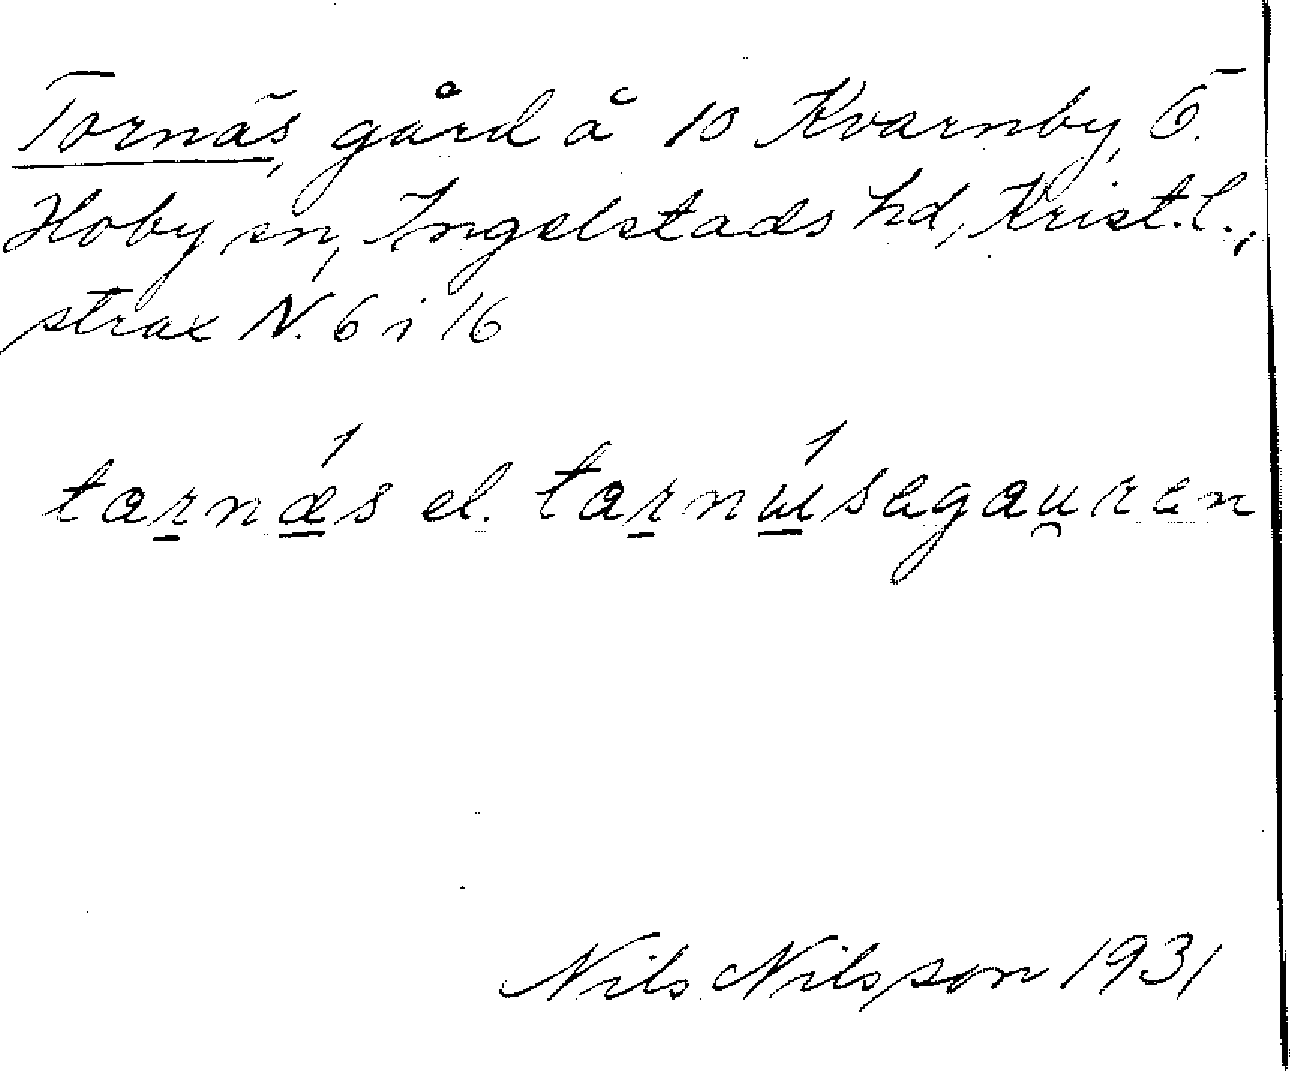 Tornäs, gård å 10 Kvarnby, Ö.
Hoby sn, Ingelstads hd, Krist.l.,
strax N. 6 i 16
tarnǽs el. tarnǽsagau̯ren
Nils Nilsson 1931